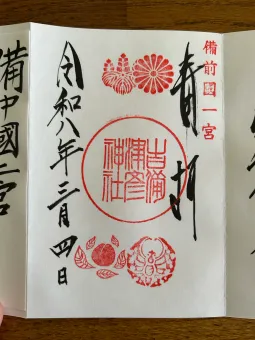 備前國一宮
奉拝
吉備津彦神社
令和八年三月四日
備中國一宮